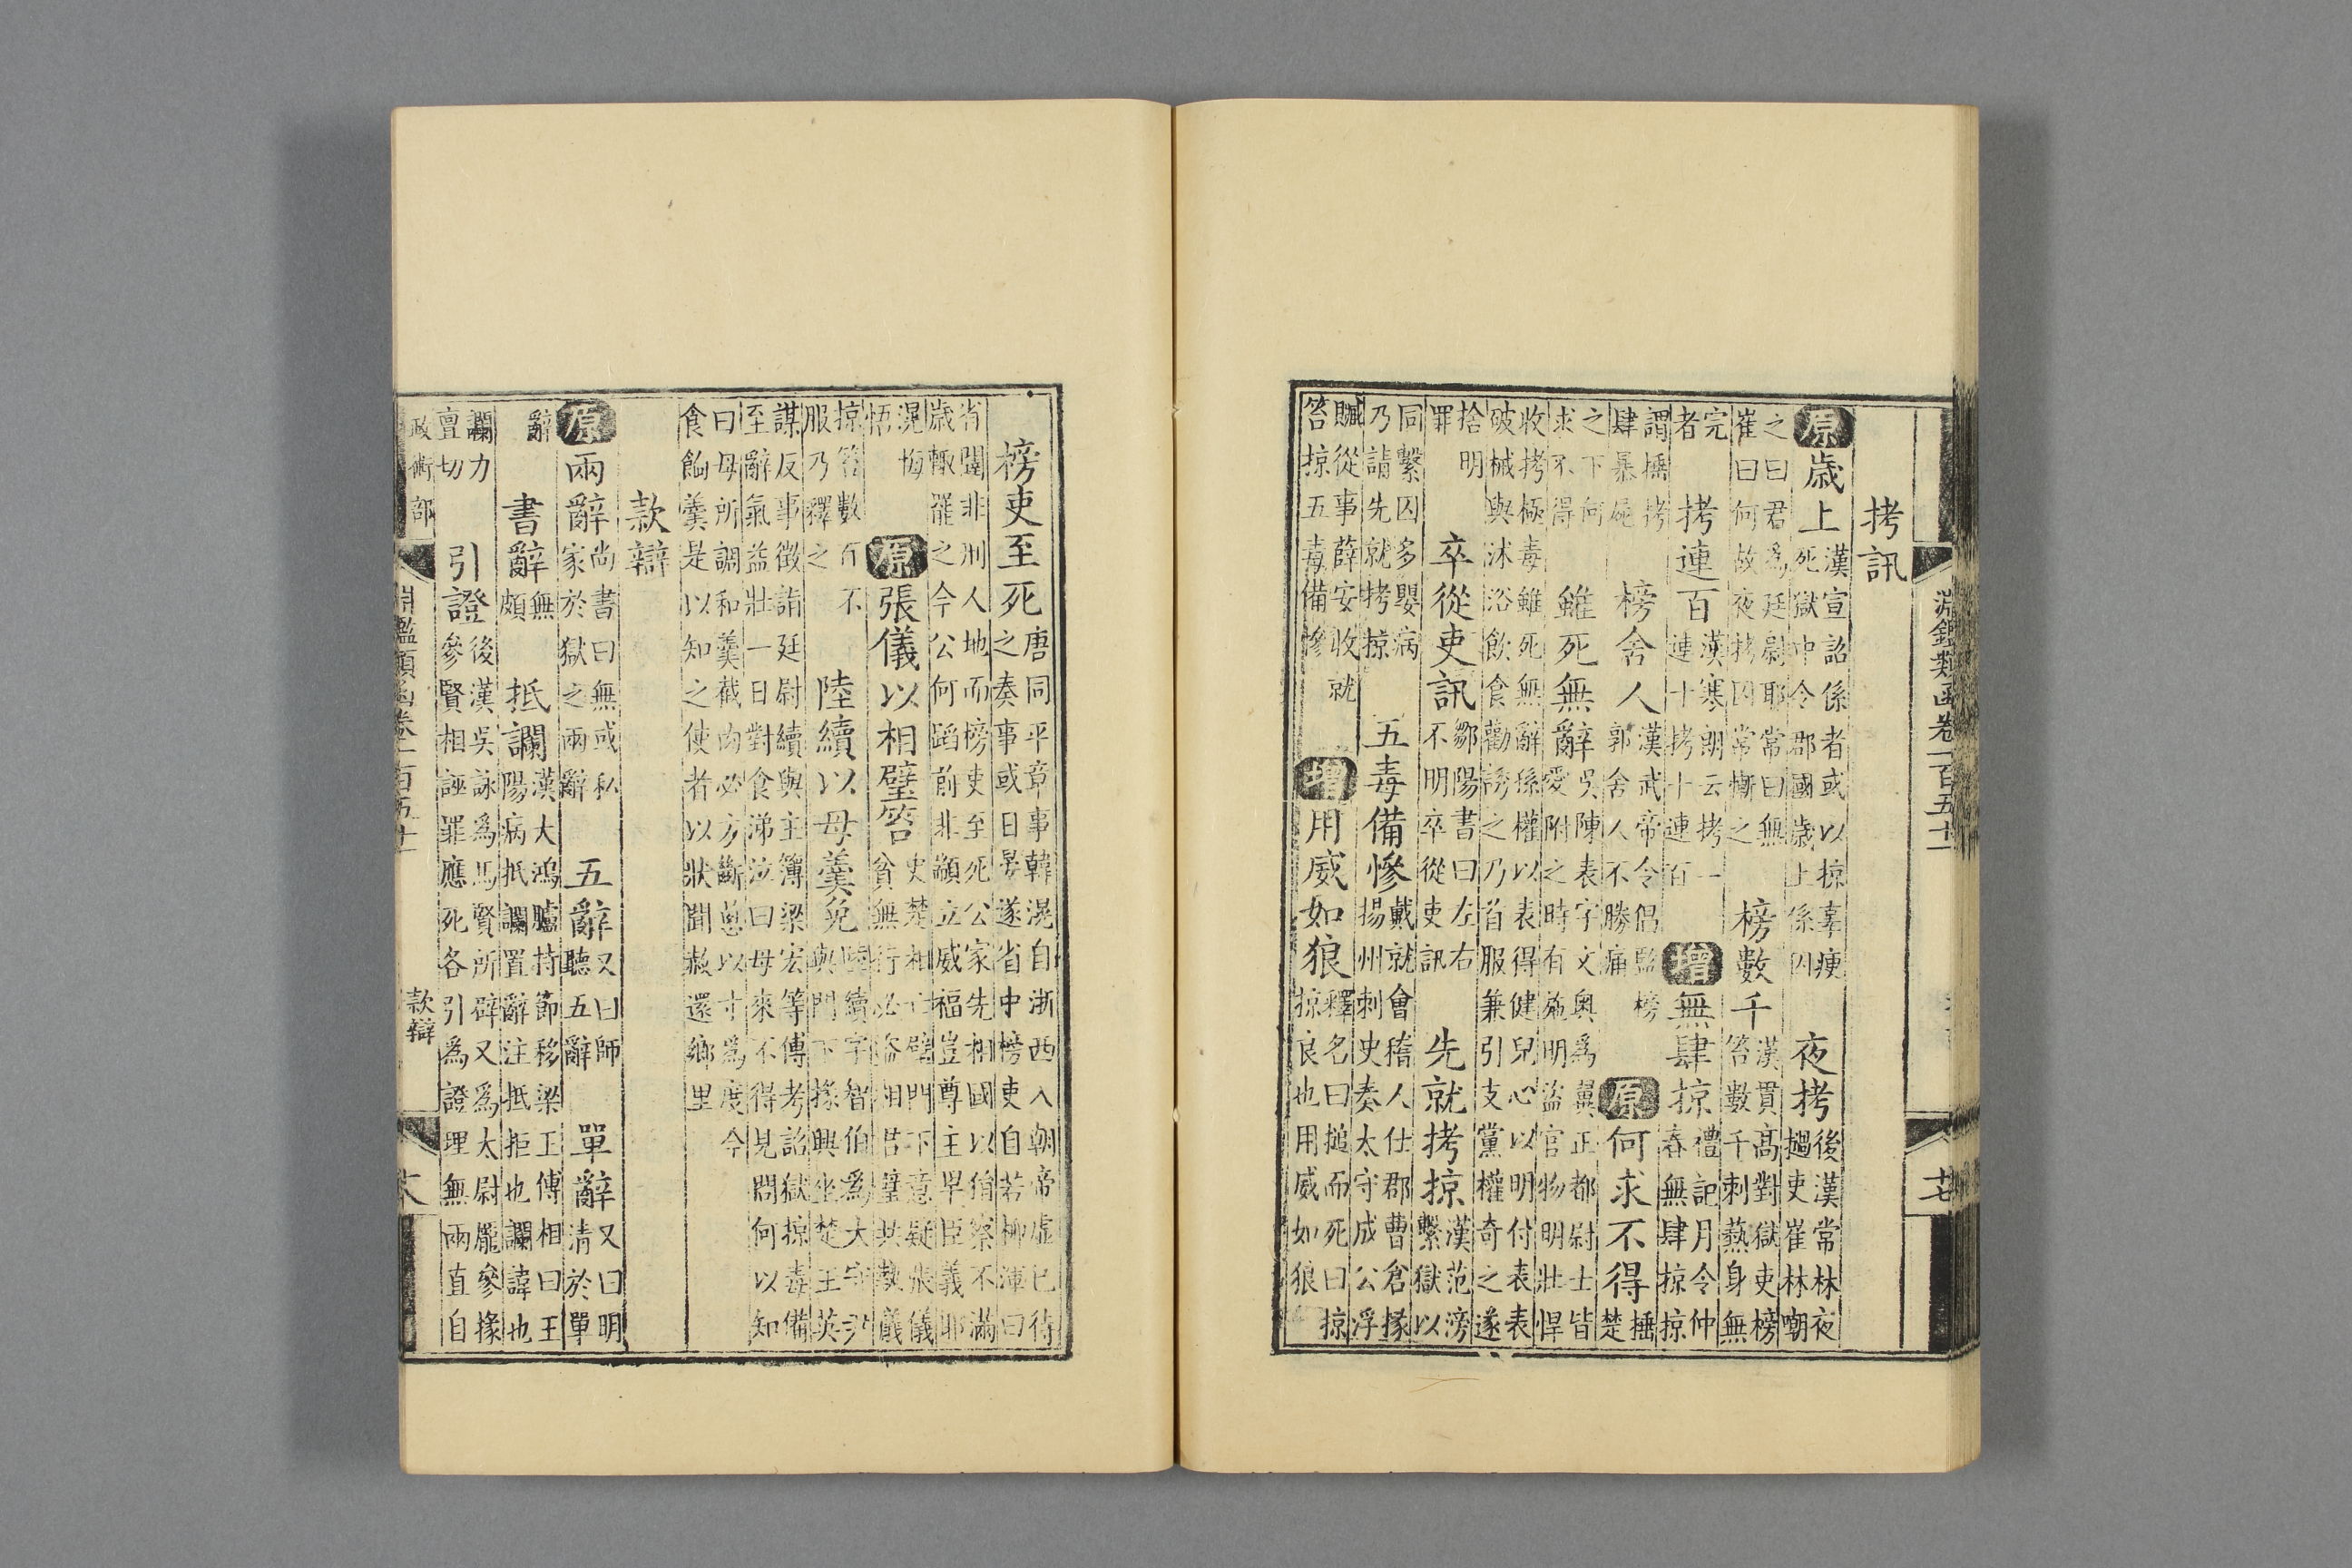 淵鑑類函卷一百五十一
十七
拷訊
原歲上漢宣詔係者或以掠辜瘐死獄中令郡國歲上係囚 夜拷後漢常林夜撾吏崔林嘲
之曰君爲廷尉耶常曰無崔曰何故夜拷囚常慚之 榜數千漢貫高對獄吏榜笞數千刺爇身無
完者 拷連百漢寒朗云拷一連十拷十連百 增無肆掠禮記月令仲春無肆掠掠
謂捶拷肆暴屍 榜舍人漢武帝令倡監榜郭舍人不勝痛 原何求不得捶楚
之下何求不得 雖死無辭吳陳表字文奧爲翼正都尉士皆愛附之時有施明盜官物明壯悍
收拷極毒雖死無辭孫權以表得健兒心以明付表表破械與沐浴飲食勸誘之乃首服兼引支黨權奇之遂
捨明罪 卒從吏訊鄒陽書曰左右不明卒從吏訊 先就拷掠漢范滂繫獄以
同繫囚多嬰病乃請先就拷掠 五毒備慘戴就會稽人仕郡曹倉掾揚州刺史奏太守成公浮
贓從事薛安收就笞掠五毒備慘 增用威如狼釋名曰搥而死曰掠掠良也用威如狼
榜吏至死唐同平章事韓滉自浙西入朝帝虛己待之奏事或日晏遂省中榜吏自若柳渾曰
省闥非刑人地而榜吏至死公家先相國以狷察不滿歲輒罷之今公何蹈前非顓立威福豈尊主卑臣義耶
滉悔悟 原張儀以相璧笞史楚相亡璧門下意疑張儀貧無行必盜相君璧共執儀
掠笞數百不服乃釋之 陸續以母羹免陸續字智伯爲大守尹與門下掾興坐楚王英
謀反事徵詣廷尉續與主簿梁宏等傳考詔獄掠毒備至辭氣益壯一日對食涕泣曰母來不得見問何以知
曰母所調和羹截肉必方斷葱以寸爲度今食餉羹是以知之使者以狀聞赦還鄉里
款辯
原兩辭尚書曰無或私家於獄之兩辭 五辭又曰師聽五辭 單辭又曰明清於單
辭 書辭無頗 抵讕漢大鴻臚持節移梁王傅相曰王陽病抵讕置辭注抵拒也讕諱也
讕力亶切 引證後漢吳詠爲馬賢所辟又爲太尉龐參掾參賢相誣罪應死各引爲證理無兩直自
政術部 淵鑑類函卷一百五十一 款辯